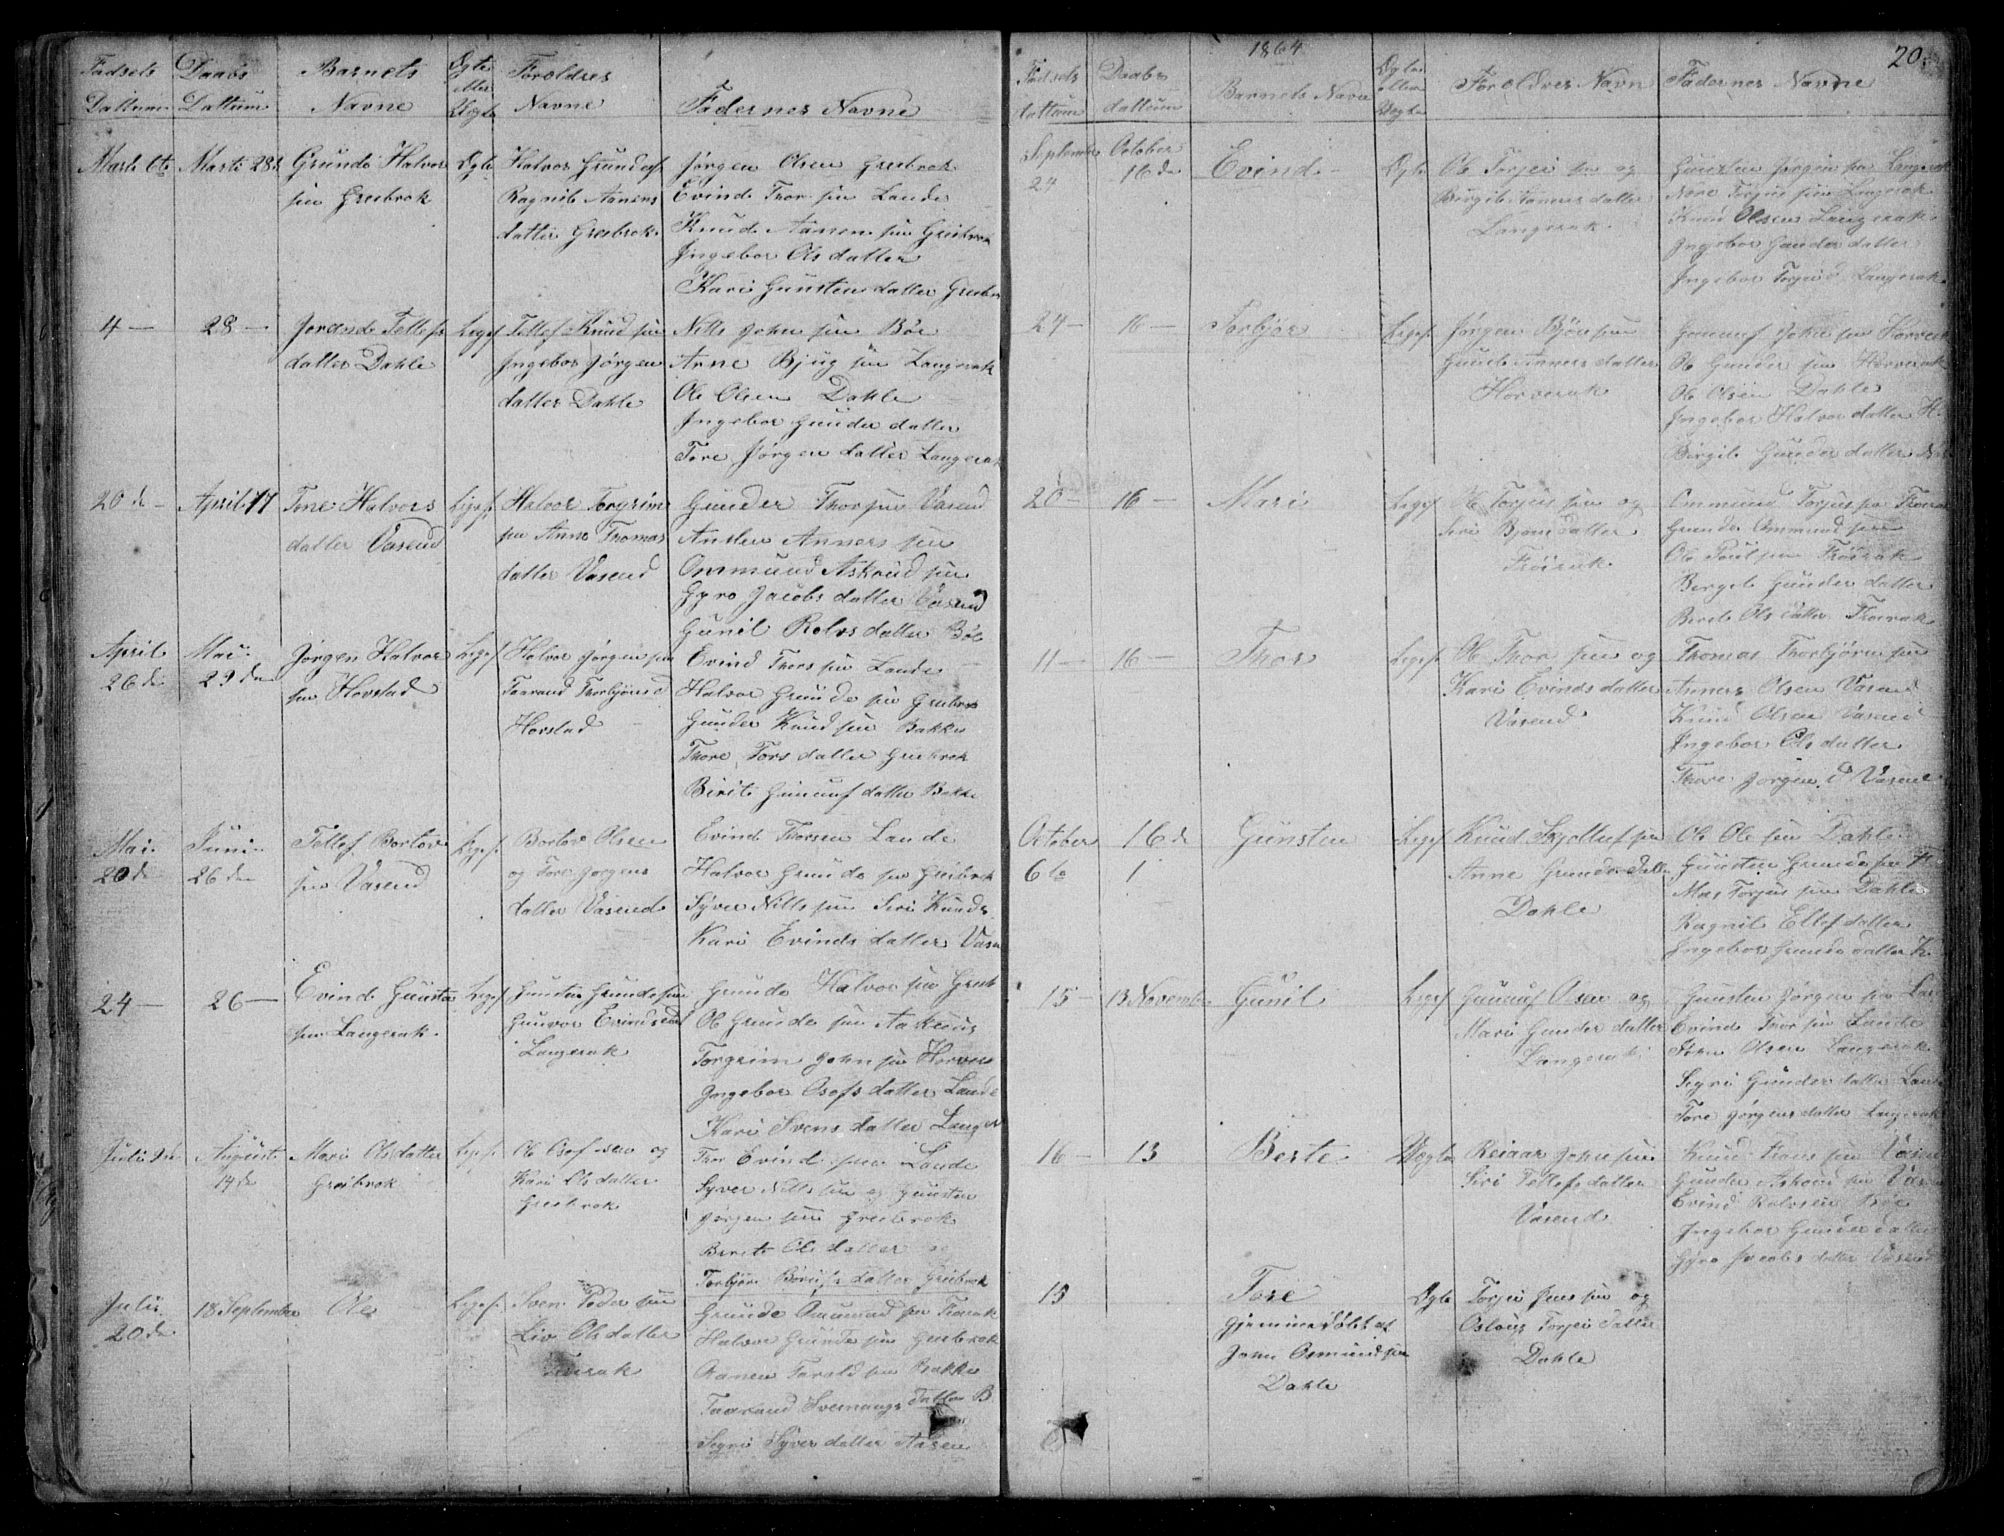 Fødsels Dattum
Daabs Dattum
Barnets Navne
Egte eller Uegte
Foroldres Navne
Fadernes Navne
Marti 6te
Marti 28de
Grunde Halvor
sen Greibrok
Egte
Halvor Grundesen
Ragnile Aanens
datter Greibrok
Jørgen Olsen Greibrok
Evind Thor sen Lande
Knud Aanen sen Greibrok
Ingebor Ols datter
Kari Gunsten datter Greibro
4 —
28 —
Jorand Tellefs
datter Dahle
Ligesa
Tellef Knud sen
Ingebor Jørgen
datter Dahle
Nills John sen Bøe
Arne Bjug sen Langerak
Ole Olsen Dahle
Ingebor Gunder datter
Tore Jørgen datter Langerak
20 de —
April 17
Tone Halvors
datter Vasend
Ligesa
Halvor Torgrim
sen Anne Thomas
datter Vasend
Gunder Thor sen Vasend
Anders Anners sen
Ommund Askoud sen
Gyro Jacobs datter Vasend
Gunil Rolvs datter Bøe
April
26 de
Mai
29 de
Jørgen Halvor
sen Hovstad
Ligesa
Halvor Jørgen sen
Taarand Thorbjøns d
Hovstad
Evind Thors sen Lande
Halvor Grunde sen Greibrok
Gunder Knud sen Bakke
Thore Tors datter Greibrok
Birite Gunuuf datter Bakke
Mai
20 de
Juni
26 de
Tellef Bortov
sen Vasend
Ligesa
Bortov Olsen
og Tore Jorgens
datter Vasend
Evind Thorsen Lande
Halvor Grunde sen Greibrok
Syver Nills sen Siri Knuds
Kari Evinds datter Vasen
24 —
26 —
Evind Gunsten
sen Langerak
Ligesa
Gunsten Grunde sen
Gunvor Evindsdat
Langerak
Grunde Halvor sen Greib
Ole Grunde sen Aakhus
Torgrim John sen Horver
Ingebor Osofs datter Lande
Kari Svens datter Langer
Juli
August
14 de
Mari Ols datter
Greibrok
Ligesa
Ole Osof sen og
Kari Ols datter
Greibrok
Thor Evind sen Lande
Syver Nills sen og Gunsten
Jørgen sen Greibrok
Berete Ols datter
Torbjør datter Greibrok
Juli
20 de
18 September
Ole
Ligesa
Sven Peder sen
Liv Ols datter
Grunde Omund sen
Halvor Grunde sen Greibrok
Aanen Tarald sen Bakke
Taarand Svenungs datter B
Segri Syver datter Aasen
1864
20.
Fødsels dattum
Daabs dattum
Barnets Navn
Egte eller Uegte
Foroldres Navn
Fadernes Navne
September
24
October
16 de
Evind
Egte
Ole Torjei sen og
Birgit Aaners datter
Langerak
Gunsten Jørgen sen Langerak
Nere Torjus sen Langerak
Knud Olsen Langerak
Ingebor Gunder datter
Ingebor Torjei d Langerak
24 —
16 —
Torbjør
Ligesa
Jørgen Bjøn sen
Gunil Anners datter
Horverak
Gunuuf John sen Horverak
Ole Gunder sen Horverak
Ole Olsen Dahle
Ingebor Halvor datter H
Birgit Gunder datter
20 —
16 —
Mari
Ligesa
Ole Torjus sen og
Siri Bjøns datter
Frøirak
Ommund Torjus sen
Gunder Ommund sen
Ole Poul sen Frøirak
Bergit Gunder datter
Berit Ols datter Frøirak
11 —
16 —
Thor
Ligesa
Ole Thor sen og
Kari Evinds datter
Vasend
Thomas Thorbjørn sen
Anners Olsen Vasend
Knud Olsen Vasend
Ingebor Ols datter
Thore Jørgen d Vasend
October
6 te
16 de
1
Gunsten
Ligesa
Knud Kjolluf sen
Anne Grunde datter
Dahle
Ole Ole sen Dahle
Gunsten Grunde sen
Mas Torjus sen Dahle
Ragnil Ellef datter
Ingebor Grunde datter
15 —
13 Novemb
Gunil
Ligesa
Gunuuf Olsen og
Mari Gunder datter
Langerak
Gunsten Jørgen sen Lan
Evind Thor sen Lande
John Olsen Langerak
Segri Gunder datter Lan
Tore Jørgens datter Langerak
16 —
13
Berte
Uegte
Reiaar John sen
Siri Tellefs datter
Vasend
Knud Hans sen Vasen
Gunder Askoud sen Vasen
Evind Rolvsen Bøe
Ingebor Gunder datter
Gyro Jacobs datter Vasend
15
Tore
Gjemmedøbt af
John Osmund sen
Dahle
Egte
Torjus Jens sen og
Oslaug Torjei datter
Dahle